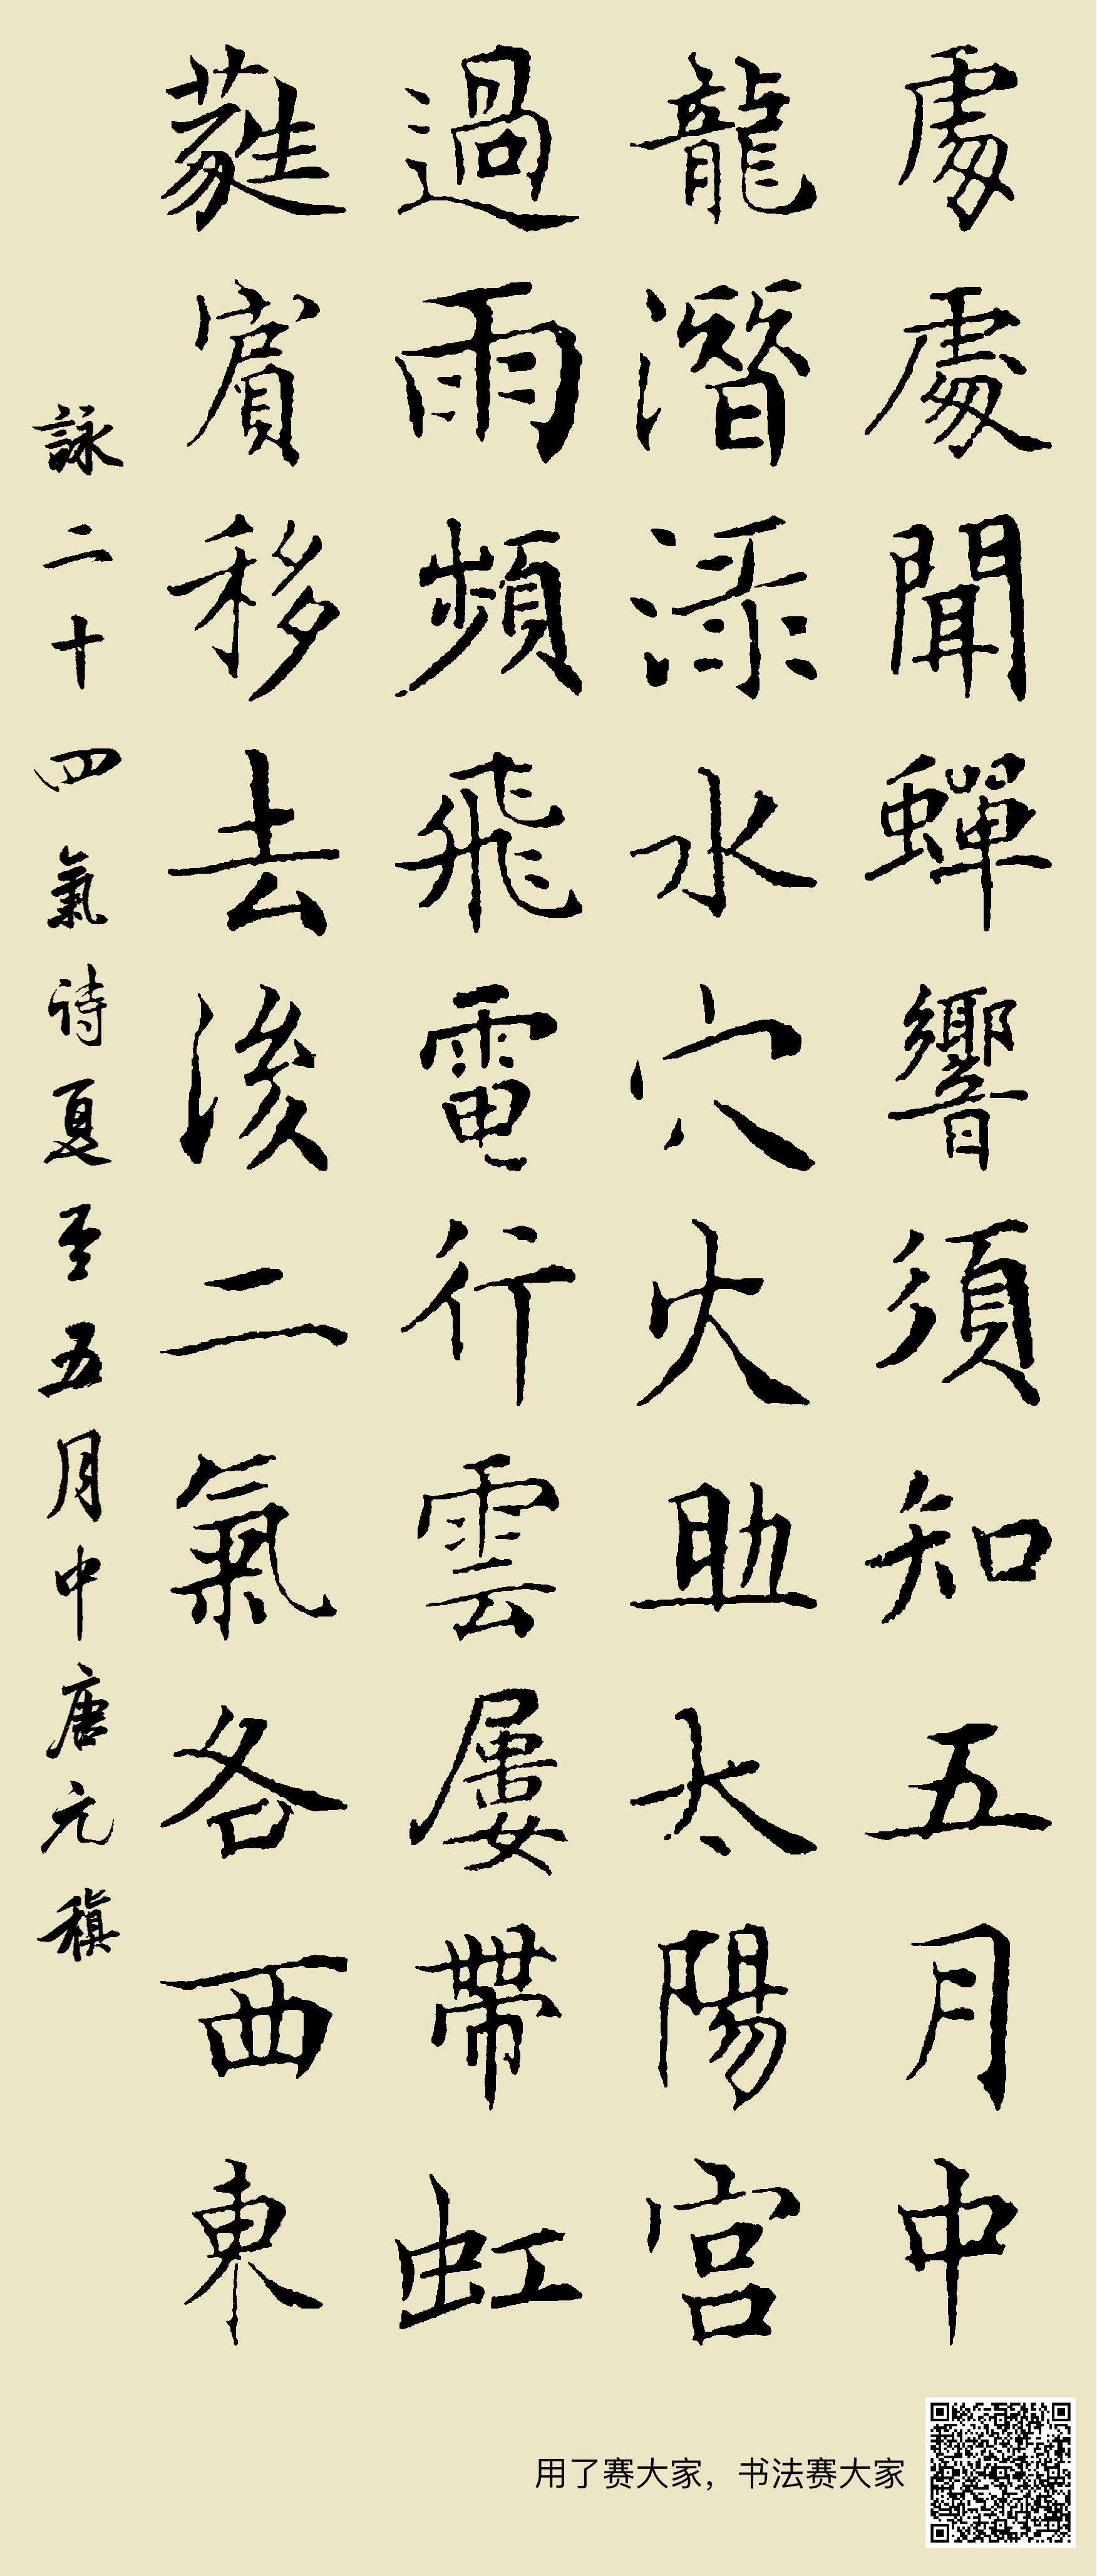 處處聞蟬響須知五月中
龍潛淥水穴火助太陽宮
過雨頻飛電行雲屢帶虹
蕤賓移去後二氣各西東
詠二十四氣詩夏至五月中唐元稹
用了赛大家，书法赛大家